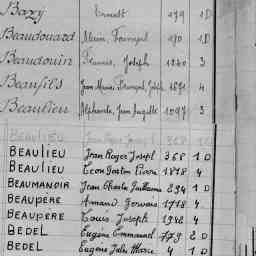 Bazy Ernest 479 1D
Beaudouard Marie, Fernand 970 1D
Beaudouin Francis, Joseph 1240 3
Beaufils Jean Marie, Joseph 4
Beaulieu Alphonse, Jean Auguste 1097 3
BEAULIEU Jean Roger Joseph 368 1D
BEAULIEU Jean Roger Joseph 368 1D
BEAULIEU Leon Gaston Pierre 1878 4
BEAUMANOIR Jean Charles Guillaume 294 1D
BEAUPERE Armand Gervais 1718 4
BEAUPERE Louis Joseph 1946 4
BEDEL Eugène Emmanuel 779 2D
BEDEL Eugène Jules Marie 4 1D